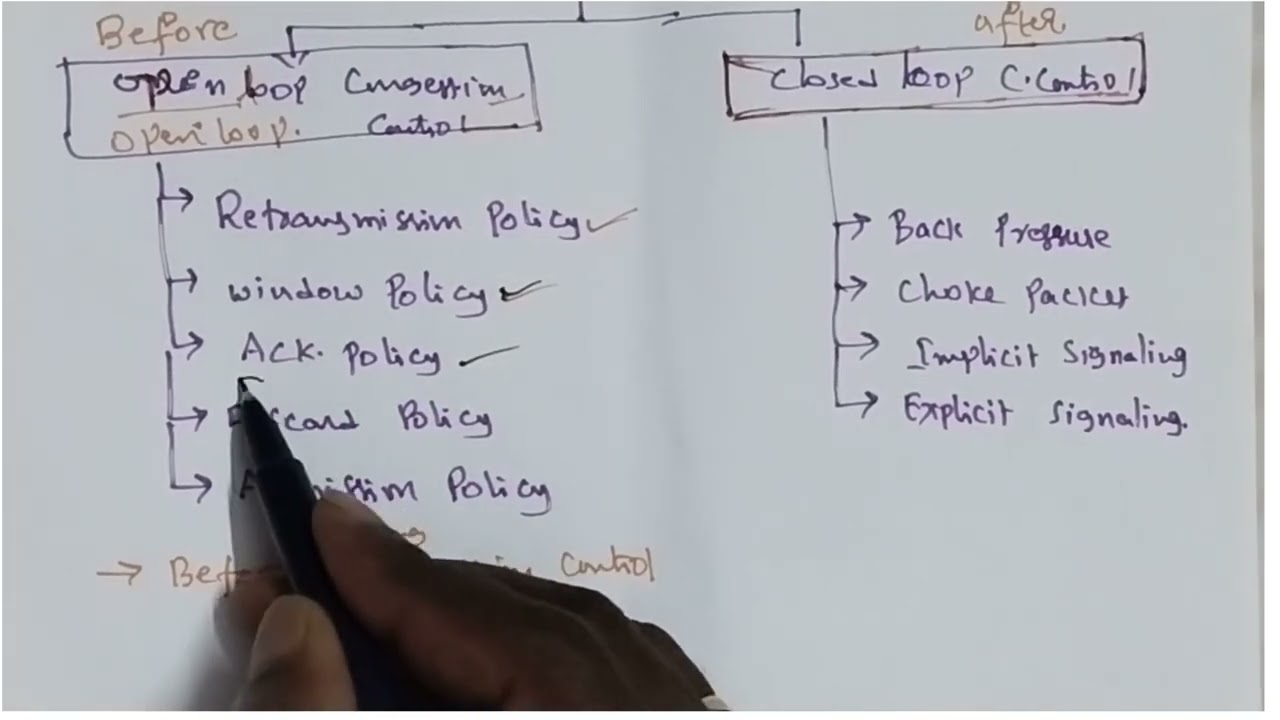 Before
open loop Congestion
open loop. Control
after
closed loop C.Control
Retransmission Policy
window Policy
Ack. Policy
Policy
Policy
Control
Back Pressure
choke Packet
Implicit Signaling
Explicit Signaling.